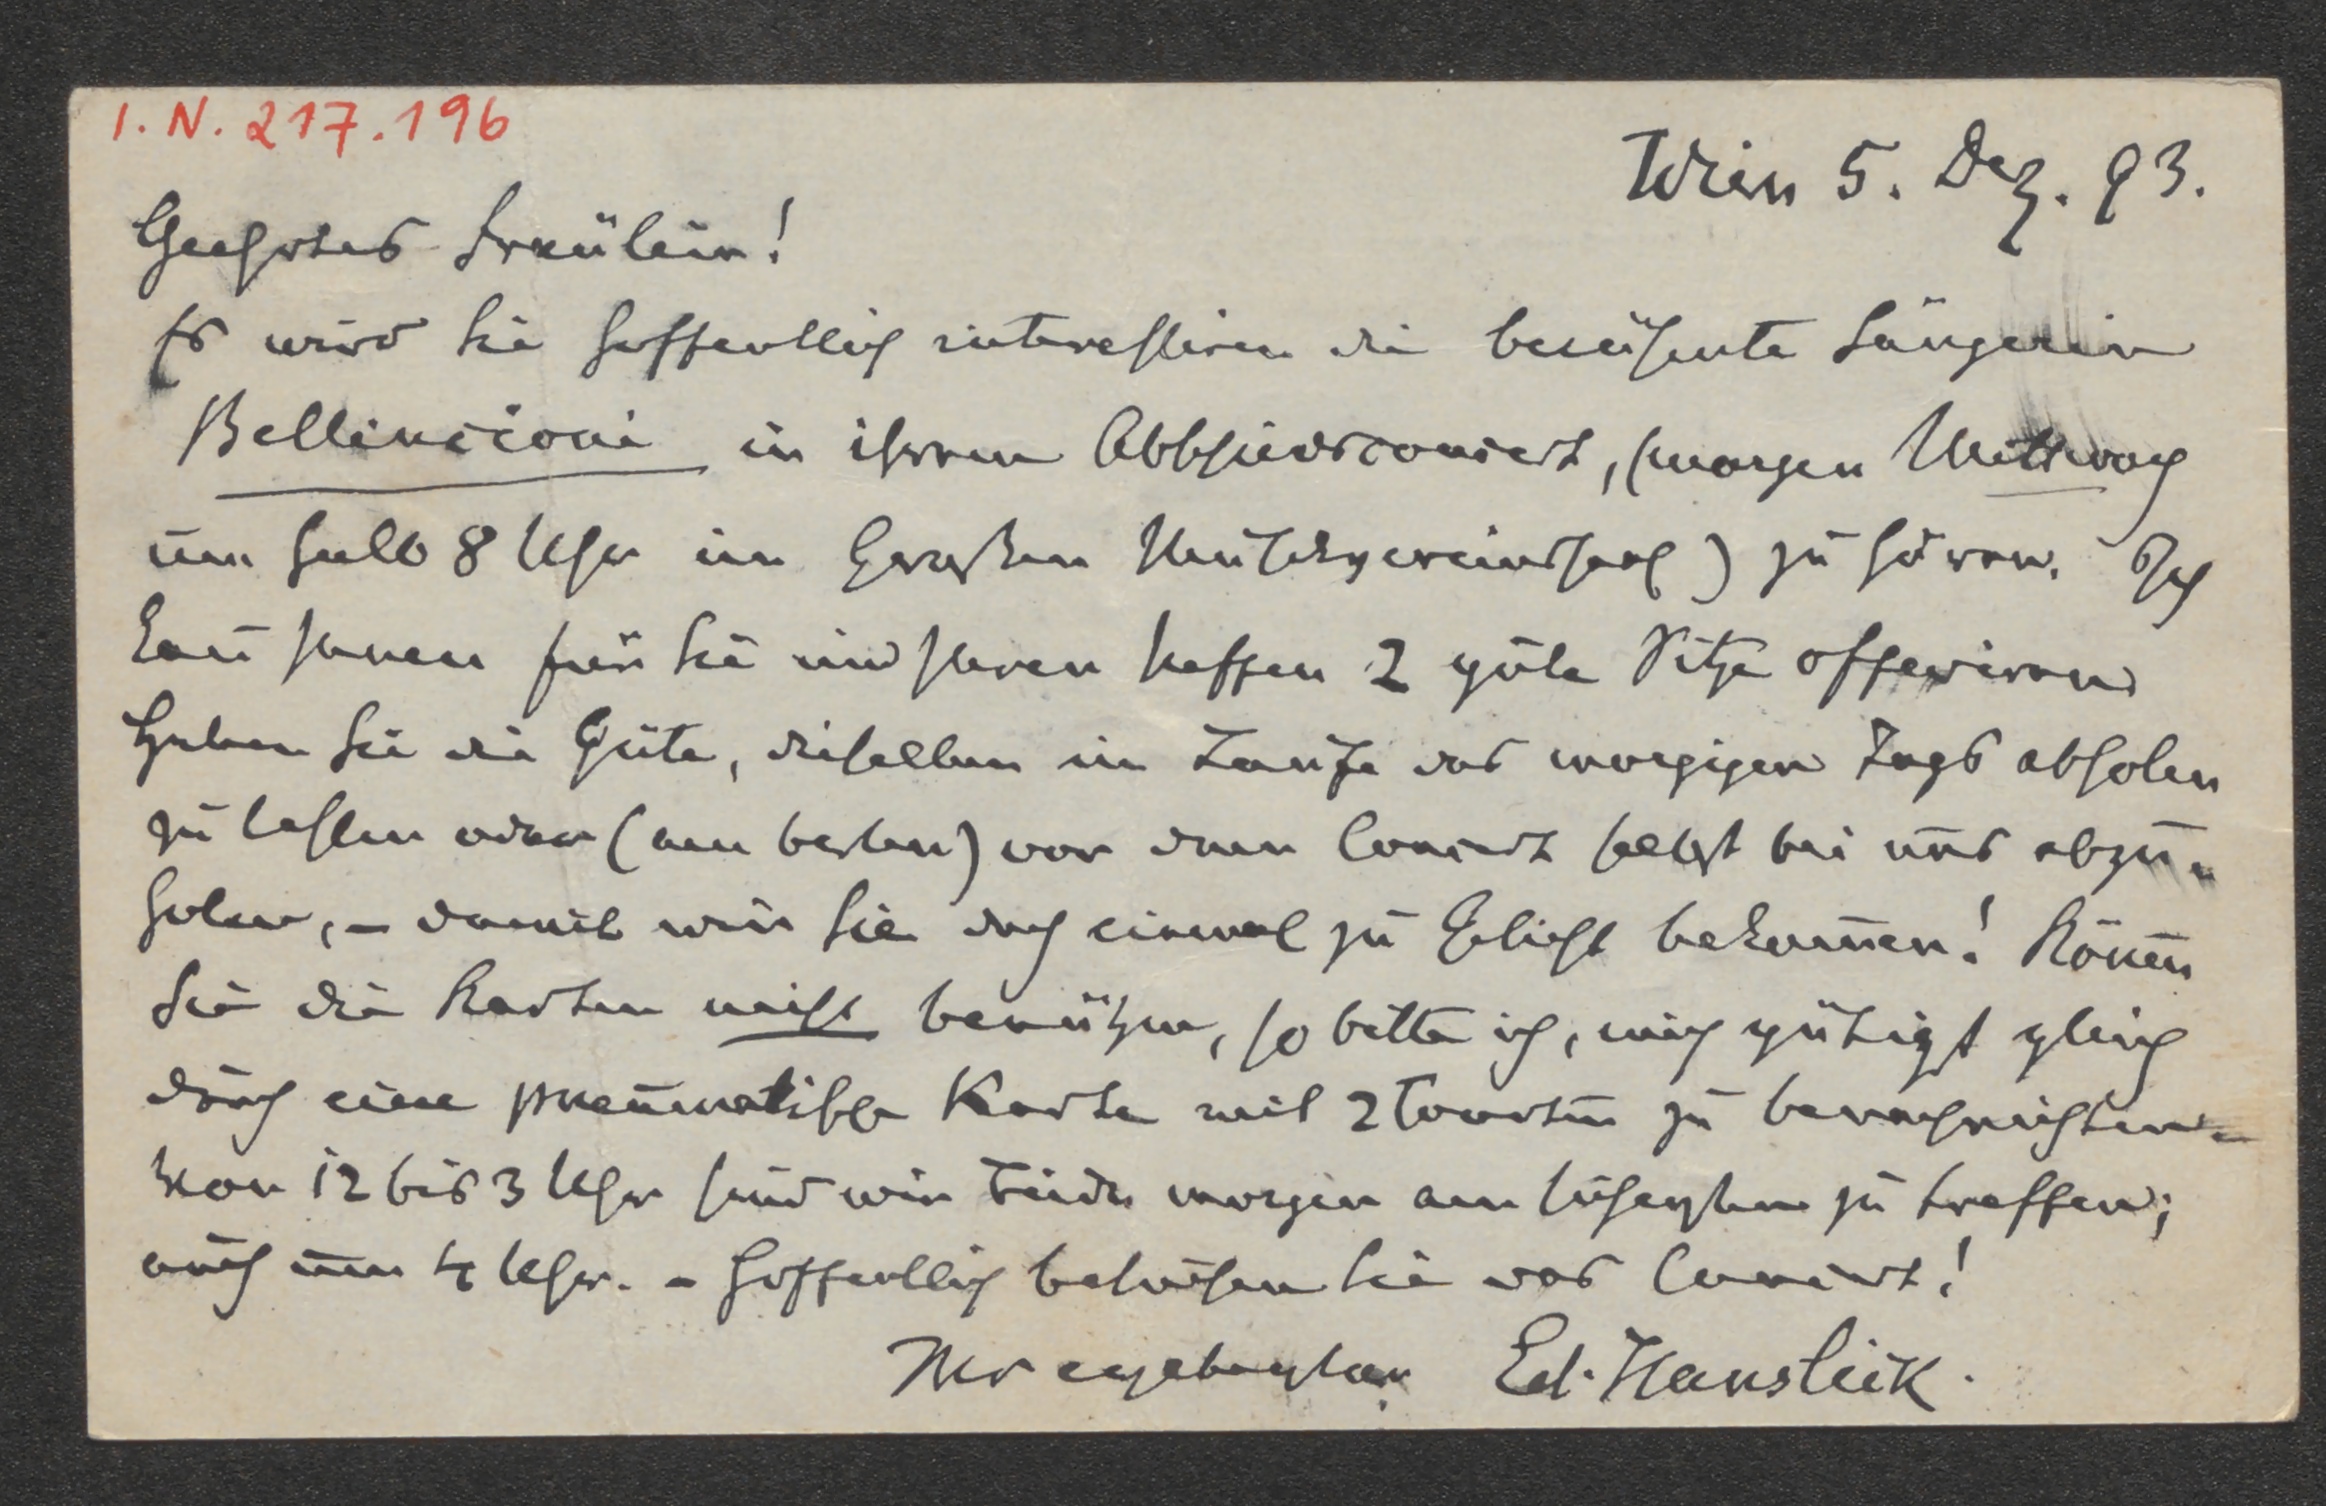 I.N. 217.196
Wien 5. Dez. 93.
Geehrtes Fräulein!
Es wird Sie hoffentlich interessiren die berühmte Sängerin
Bellincioni in ihrem Abschiedsconcert, (morgen Mittwoch
um halb 8 Uhr im Großen Musikvereinssaal) zu hören. Ich
kann Ihnen für Sie und Ihren Neffen 2 gute Sitze offeriren
Haben Sie die Güte, dieselben im Laufe des morgigen Tags abholen
zu lassen oder (am besten) vor dem Concert selbst bei uns abzu-
holen, – damit wir Sie doch einmal zu Gesicht bekommen! Können
Sie die Karten nicht benützen, so bitte ich, mich gütigst gleich
durch eine pneumatische Karte mit 2 Worten zu benachrichten.
Von 12 bis 3 Uhr sind wir Beide morgen am sichersten zu treffen;
auch um 4 Uhr. – Hoffentlich besuchen Sie das Concert!
Ihr ergebenster Ed. Hanslick.